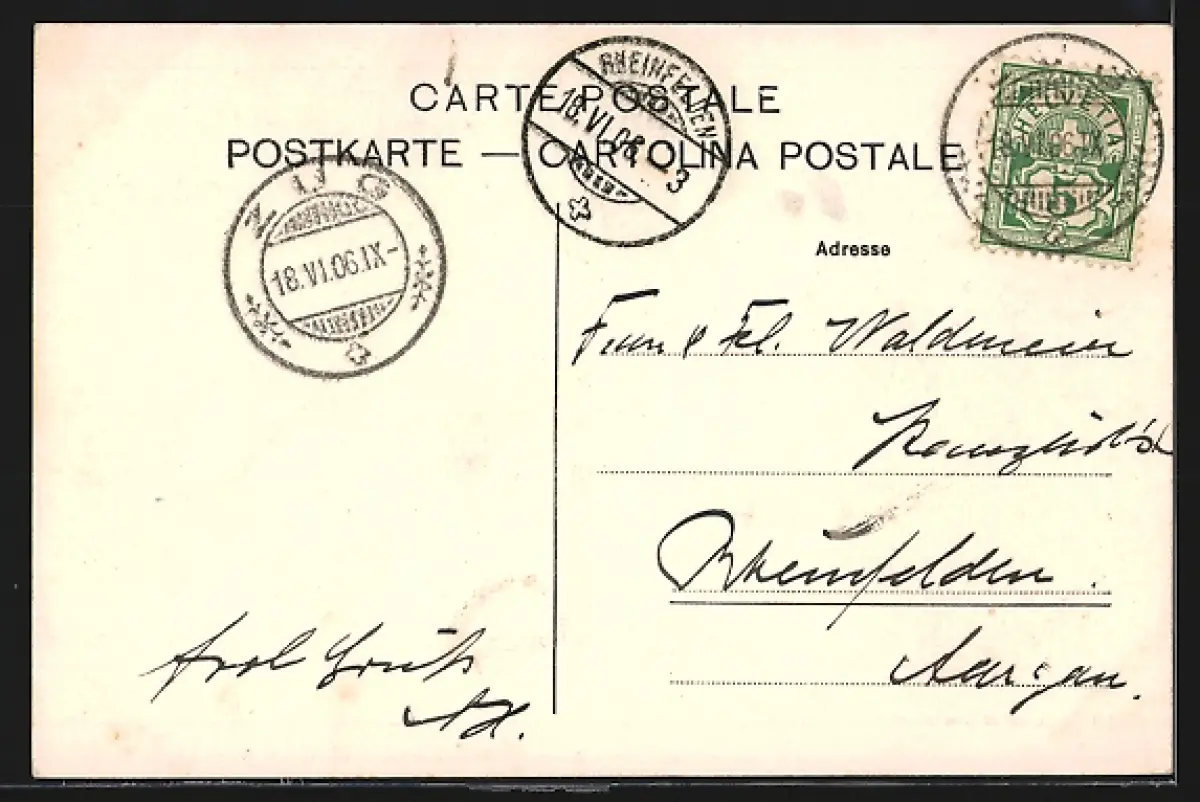 CARTE POSTALE
POSTKARTE — CARTOLINA POSTALE
RHEINFELDEN
18.VI.06. 3
ZUG
18.VI.06.IX-
HELVETIA
5
Adresse
Frau & Frl. Waldmeier
Rheinfelden.
Aargau.
Grüß